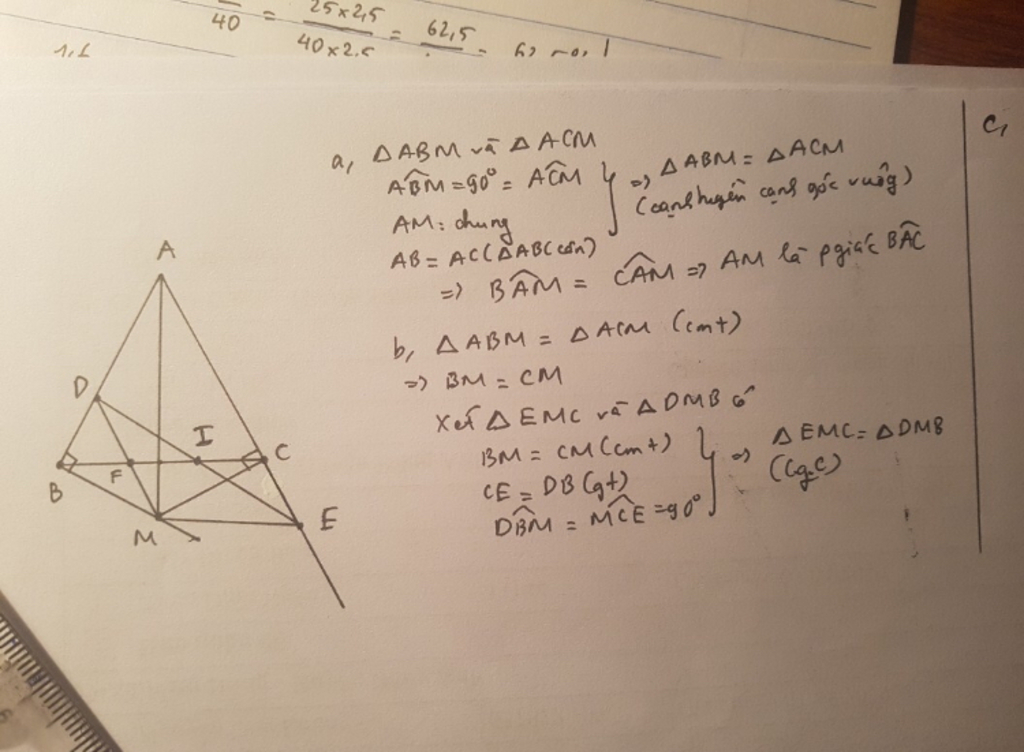 40 = 25×2,5 / 40×2,5 = 62,5
1,6
a, △ABM và △ACM
AB̂M = 90° = AĈM
AM: chung
AB = AC (△ABC cân)
=> △ABM = △ACM
(cạnh huyền cạnh góc vuông)
=> BÂM = CÂM => AM là pgiác BÂC
b, △ABM = △ACM (cmt)
=> BM = CM
Xét △EMC và △DMB có
BM = CM (cmt)
CE = DB (gt)
DB̂M = MĈE = 90°
=> △EMC = △DMB
(cgc)
c,
A
D
I
C
B
F
M
E